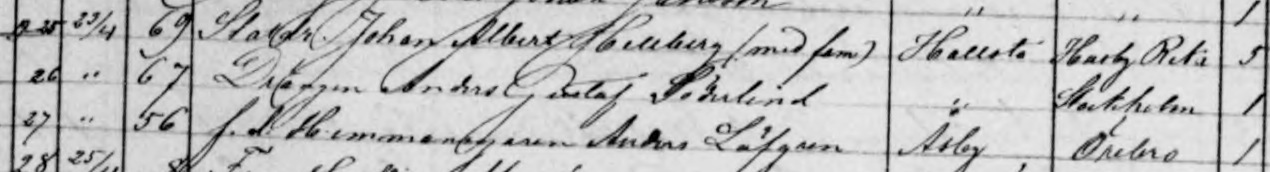 25 23/4 69 Johan Albert Hellberg (med fam) Hallsta 5
26 " 67 Drängen Anders Gustaf Söderlind " Stockholm 1
27 " 56 f.d. Hemmansegaren Anders Löfgren Åsby Örebro 1
28 25/4